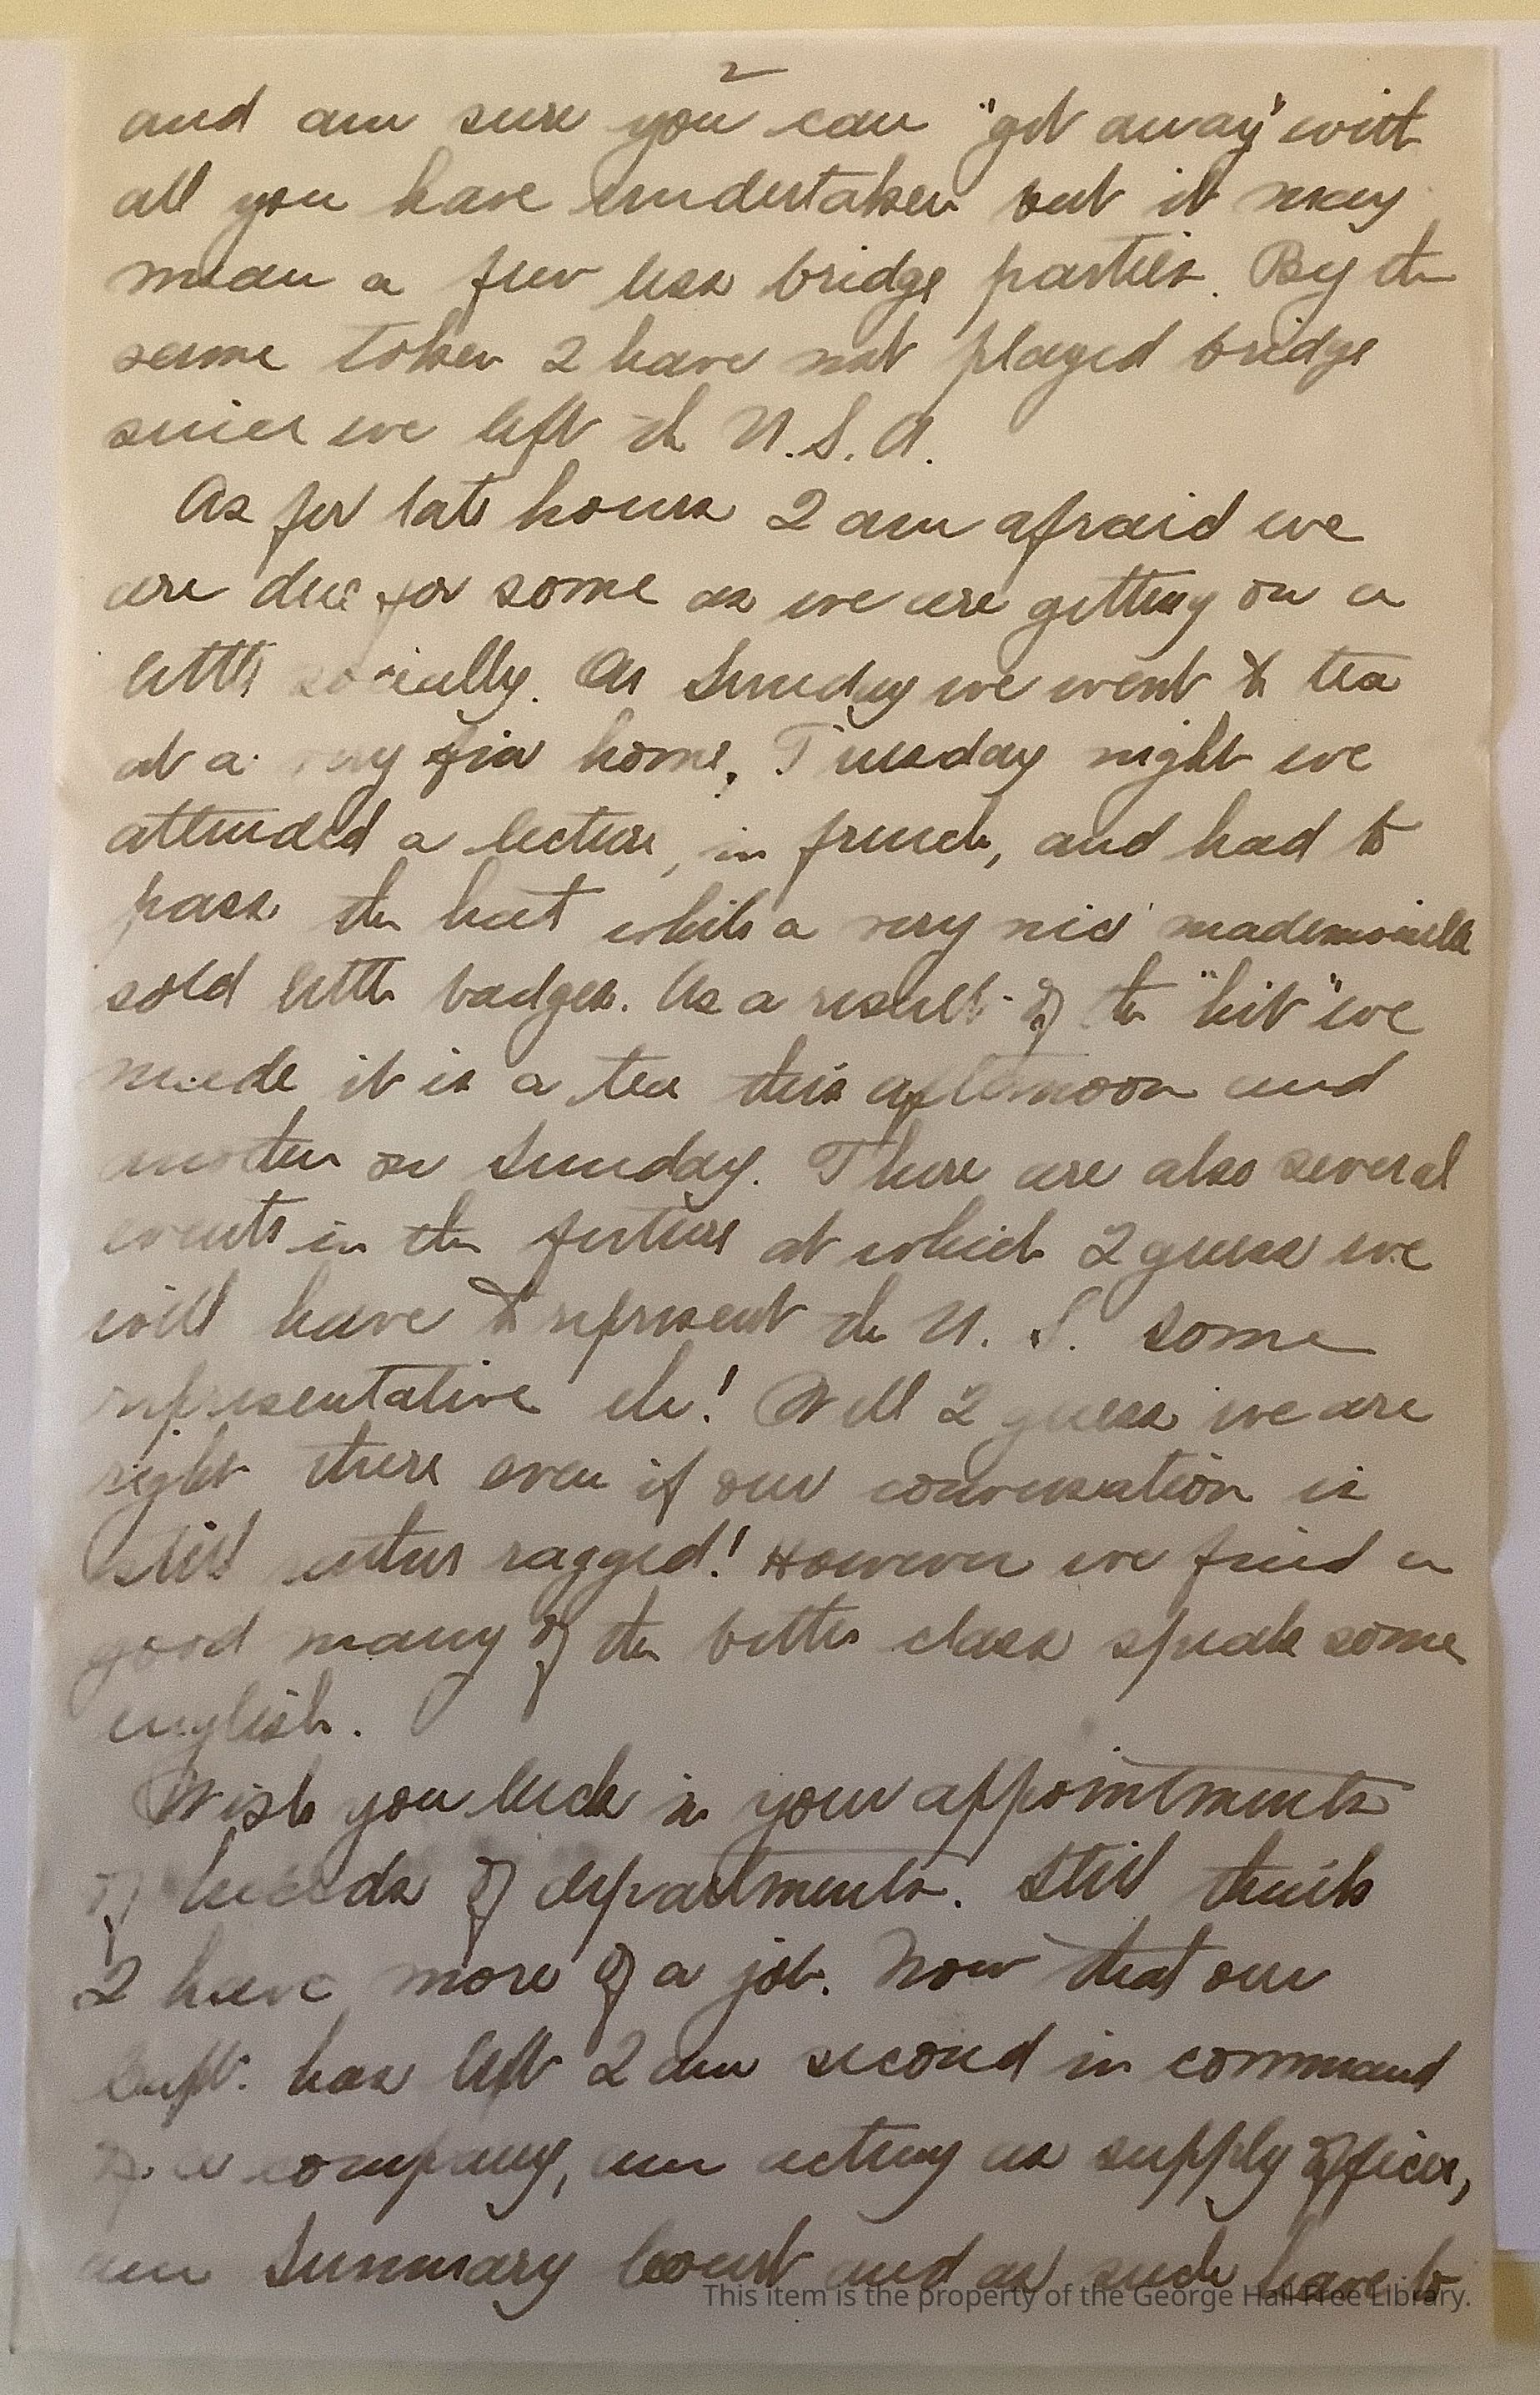 2
and am sure you can "get away" with
all you have undertaken but it may
mean a few less bridge parties. By the
same token I have not played bridge
since we left the U.S.A.
As for late hours I am afraid we
are due for some as we are getting on a
little socially. On Sunday we went to tea
at a very fine home, Tuesday night we
attended a lecture, in french, and had to
pass the hat while a very nice mademoiselle
sold little badges. As a result of the "hit" we
made it is a tea this afternoon and
another on Sunday. There are also several
events in the future at which I guess we
will have to represent the U. S. some
representative eh! Well I guess we are
right there even if our conversation is
still rather ragged! However we find a
good many of the better class speak some
english.
Wish you luck in your appointments
of heads of departments. Still think
I have more of a job. Now that our
has left I am second in command
of a company, am acting as supply officer,
am Summary Court and as such have to
This item is the property of the George Hall Free Library.